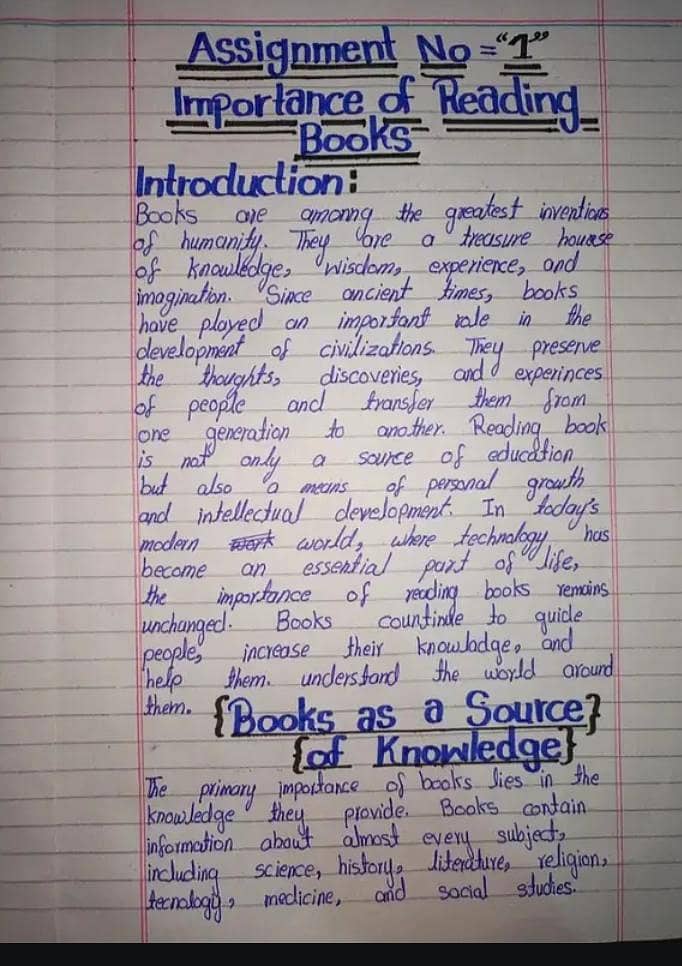 Assignment No = "1"
Importance of Reading
Books
Introduction:
Books are amonng the greatest inventions
of humanity. They are a treasure houese
of knowledge, wisdom, experience, and
imagination. Since ancient times, books
have played an important role in the
development of civilizations. They preserve
the thoughts, discoveries, and experinces
of people and transfer them from
one generation to another. Reading book
is not only a source of education
but also a means of personal growth
and intellectual development. In today's
modern work world, where technology has
become an essential part of life,
the importance of reading books remains
unchanged. Books countinue to guide
people, increase their knowladge, and
help them. understand the world around
them.
{Books as a Source}
{of Knowledge}
The primary importance of books lies in the
knowledge they provide. Books contain
information about almost every subject,
including science, history, literature, religion,
tecnology, medicine, and social studies.